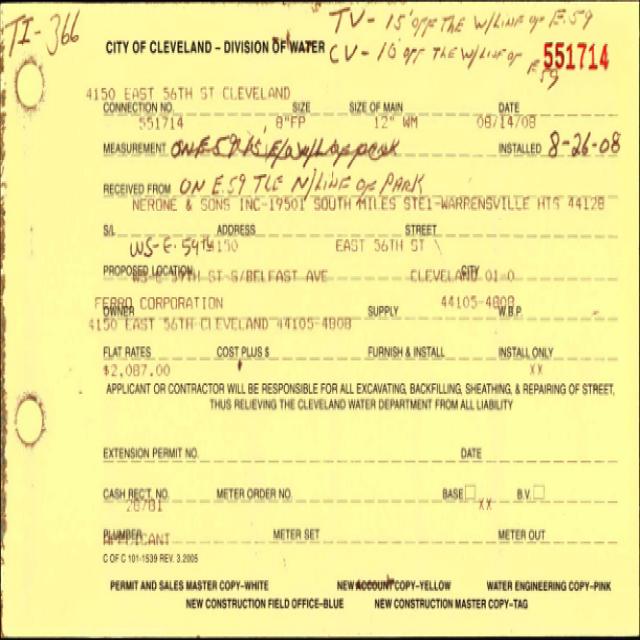 TI-366
TV- 15' OFF THE W/LINE OF E.59
CITY OF CLEVELAND – DIVISION OF WATER
CV- 10' OFF THE W/LINE OF E.59
551714
4150 EAST 56TH ST CLEVELAND
CONNECTION NO. SIZE SIZE OF MAIN DATE
551714 8"FP 12" WM 08/14/08
MEASUREMENT INSTALLED 8-26-08
RECEIVED FROM ON E.59 TLE N/LINE OF PARK
NERONE & SONS INC-19501 SOUTH MILES STE1-WARRENSVILLE HTS 44128
S/L ADDRESS STREET
WS-E. 59TH 4150 EAST 56TH ST \
PROPOSED LOCATION CITY
WS-E 59TH ST-S/BELFAST AVE CLEVELAND 01-0
FERRO CORPORATION 44105-4808
OWNER SUPPLY W.B.P.
4150 EAST 56TH CLEVELAND 44105-4808
FLAT RATES COST PLUS $ FURNISH & INSTALL INSTALL ONLY
$2,087.00 XX
APPLICANT OR CONTRACTOR WILL BE RESPONSIBLE FOR ALL EXCAVATING, BACKFILLING, SHEATHING, & REPAIRING OF STREET,
THUS RELIEVING THE CLEVELAND WATER DEPARTMENT FROM ALL LIABILITY
EXTENSION PERMIT NO. DATE
CASH REC'T. NO. METER ORDER NO. BASE B.V.
28781 XX
PLUMBER METER SET METER OUT
APPLICANT
C OF C 101-1539 REV. 3.2005
PERMIT AND SALES MASTER COPY–WHITE NEW ACCOUNT COPY–YELLOW WATER ENGINEERING COPY–PINK
NEW CONSTRUCTION FIELD OFFICE–BLUE NEW CONSTRUCTION MASTER COPY–TAG